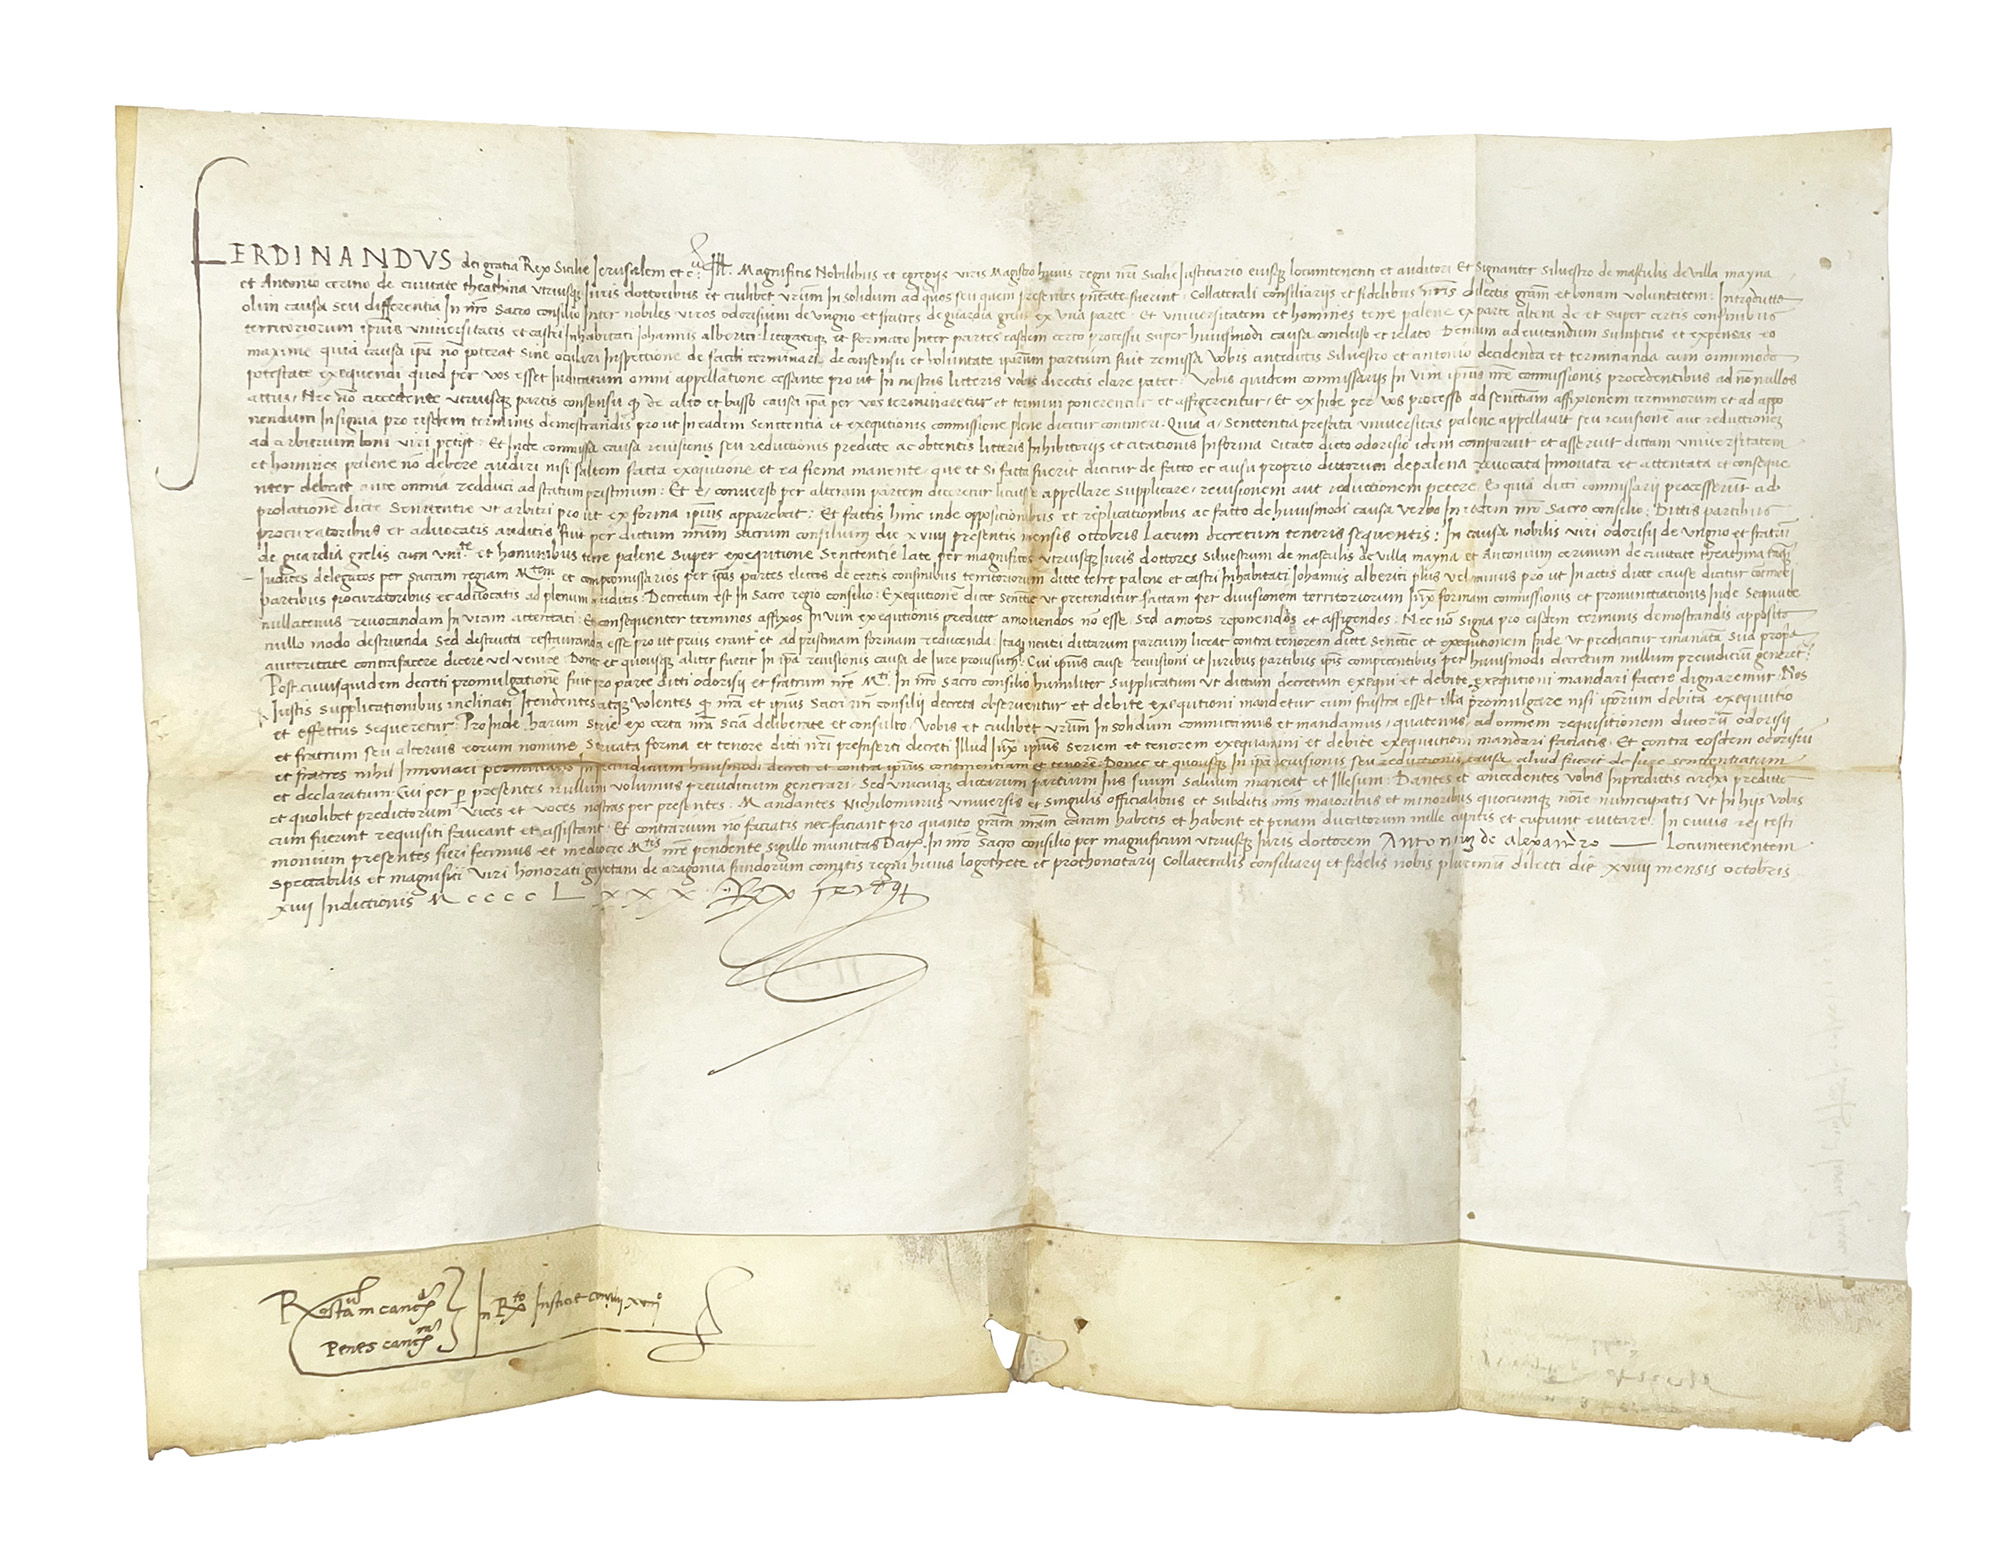 FERDINANDVS dei gratia Rex Sicilie Jerusalem et c. Magnificis Nobilibus et egregijs viris Magistro huius regni nri Sicilie Iusticiario eiusq locumtenenti et auditori Et Signanter Silvestro de masculis de villa mayna
et Antonio cerino de civitate theathina vtriusq Juris doctoribus et cuilibet vrum In solidum ad quos seu quem presentes pntate fuerint. Collaterali consiliarijs et fidelibus nris dilectis gram et bonam voluntatem: Introducta
olim causa seu differentia In nro Sacro consilio Inter nobiles viros odorisium de vngno et fratres de guardia grelis ex vna parte. Et vniversitatem et homines terre palene ex parte altera de et super certis confinibus
territoriorum ipius vniversitatis et castri Inhabitati Johannis alberici. Litigatoq et formato Inter partes easdem certo processu super huiusmodi causa concluso et relato. Demum ad evitandum sumptus et expensas eo
maxime quia causa ipa no poterat sine oculari Inspectione de facili terminari de consensu et voluntate iparum partium fuit remissa vobis antedictis Silvestro et antonio decidenda et terminanda cum omnimoda
potestate exequendi quod per vos esset Iudicatum omni appellatione cessante pro ut In nostris litteris vobis directis clare patet. Vobis quidem commissarijs In vim ipius nre commissionis procedentibus ad no nullos
actus, Nec no accedente vtriusq partis consensu q de alto et basso causa ipa per vos terminaretur et termini ponerentur et affigerentur, Et ex Inde per vos processo ad sentiam affixionem terminorum et ad appo
nendum Insignia pro eisdem terminis demostrandis pro ut In eadem Sententia et exequtionis commissione plene dicitur contineri. Quia a Sententia prefata vniversitas palene appellavit seu revisionem aut reductionem
ad arbitrium boni viri petijt. Et Inde commissa causa revisionis seu reductionis predicte ac obtentis litteris Inhibitorijs et citationis Informa Citato dicto odorisio idem comparuit et asseruit dictam vniversitatem
et homines palene no debere audiri nisi saltem facta exequtione et ea firma manente, que et si facta fuerit dicitur de facto et ausu proprio dictorum de palena revocata Innovata et attentata et conseque
nter debeat ante omnia redduci ad statum pristinum: Et e converso per alteram partem diceretur licuisse appellare supplicare, revisionem aut reductionem petere, Eo quia dicti commissarij processerunt ad
prolatione dicte Sententie vt arbitri pro ut ex forma ipius apparebat: Et factis hinc inde oppositionibus et replicationibus ac facto de huiusmodi causa verbo In eodem nro Sacro consilio: Dictis partibus
procuratoribus et advocatis auditis fuit per dictum nrum Sacrum consilium die xviiij presentis mensis octobris latum decretum tenoris sequentis: In causa nobilis viri odorisij de vngno et fratrum
de guardia grelis cum vnite et hominibus terre palene super exequtione Sententie late per magnificos vtriusq Juris doctores Silvestrum de masculis de villa mayna et Antonium cerinum de civitate theathina tanq
Judices delegatos per sacram regiam Mtem et compromissarios per ipas partes electos de certis confinibus territoriorum dicte terre palene et castri Inhabitati Johannis alberici plus vel minus pro ut In actis dicte cause dicitur contineri
partibus procuratoribus et advocatis ad plenum auditis: Decretum est In Sacro regio consilio: Exequtione dicte Sentie vt pretenditur factam per divisionem territoriorum Iuxta formam commissionis et pronuntiationis Inde Sequute
nullatenus revocandam In viam attentati: Et consequenter terminos affixos In vim exequtionis predicte amovendos no esse, Sed amotos reponendos et affigendos: Nec no signa pro eisdem terminis demostrandis apposita
nullo modo destruenda Sed destructa restauranda esse pro ut prius erant et ad pristinam formam reducenda: Itaq neutri dictarum partium liceat contra tenorem dicte Sentie et exequtionem Inde vt predicitur emanata sua propa
auctoritate contrafacere dicere vel venire. Donec et quousq aliter fuerit In ipa revisionis causa de Jure provisum: Cui ipius cause revisioni et Iuribus partibus ipis competentibus per huiusmodi decretum nullum preiudicium generet:
Post cuiusquidem decreti promulgatione fuit pro parte dicti odorisij et fratrum nre Mti. In nro Sacro consilio humiliter supplicatum vt dictum decretum exequi et debite exequtioni mandari facere dignaremur. Nos
Iustis supplicationibus inclinati Itendentes atque volentes q nra et ipius Sacri nri consilij decreta observentur et debite exequtioni mandetur cum frustra esset illa promulgare nisi iporum debita exequutio
et effectus sequeretur: Pro inde harum Serie ex certa nra scia deliberate et consulto. Vobis et cuilibet vrum In solidum committimus et mandamus, quatenus, ad omnem requisitionem dictoru odorisij
et fratrum seu alterius eorum nomine, Servata forma et tenore dicti nri preinserti decreti Illud Iuxta ipius seriem et tenorem exequamini et debite exequutioni mandari faciatis. Et contra eosdem odorisiu
et fratres nihil Innovari permittatis In preiudicium huiusmodi decreti et contra ipius continentiam et tenore. Donec et quousq In ipa revisionis seu reductionis causa aliud fuerit de Jure sententiatum
et declaratum. Cui per presentes nullum volumus preiudicium generari. Sed vnicuiq dictarum partium Ius suum salvum maneat et Illesum: Dantes et concedentes vobis Inpredictis circha predicta
et quolibet predictorum Vices et voces nostras per presentes. Mandantes Nichilominus vniversis et singulis officialibus et subditis nris maioribus et minoribus quocumq noie nuncupatis vt In hijs vobis
cum fuerint requisiti faveant et assistant. Et contrarium no faciatis nec faciant pro quanto gram nram caram habetis et habent et penam ducatorum mille cupitis et cupiunt evitare. In cuius rei testi
monium presentes fieri fecimus et mediocre Mtis nre pendente sigillo munitas. Dat. In nro Sacro consilio per magnificum vtriusq Juris doctorem Antonium de Alexandro — Locumtenentem
spectabilis et magnifici viri honorati gayetani de aragonia fundorum comitis regni huius logothete et prothonotarij Collateralis consiliarij et fidelis nobis plurimum dilecti die xviiij mensis octobris
xiiij Indictionis M c c c c L x x x.
penes canc